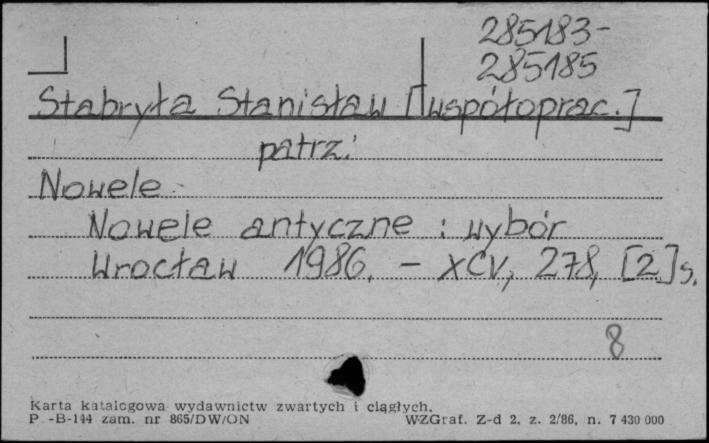 285183-
285185
Stabryła Stanisław [współoprac.]
patrz:
Nowele
Nowele antyczne : wybór
Wrocław 1986. - XCV, 278, [2] s.
8
Karta katalogowa wydawnictw zwartych i ciągłych.
P.-B-144 zam. nr 865/DW/ON WZGraf. Z-d 2, z. 2/86, n. 7 430 000